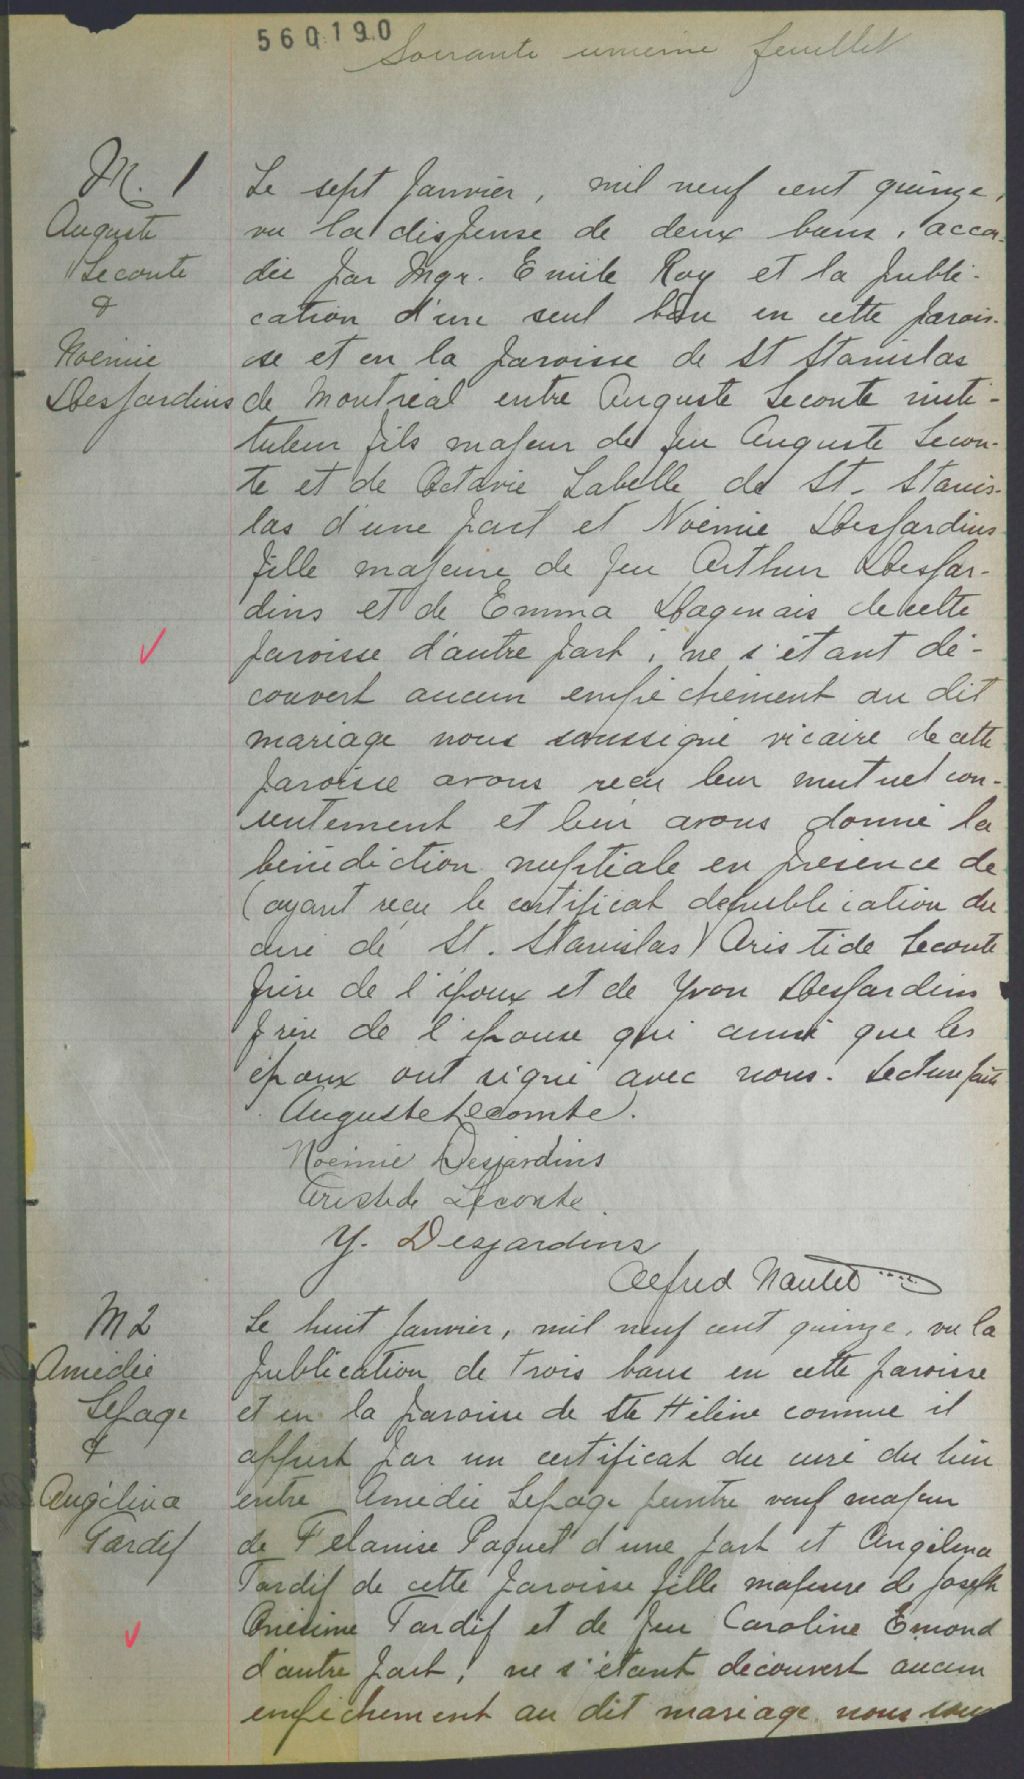 560190
Soixante unième feuillet
M. 1
Auguste
Leconte
&
Noémie
Desjardins
Le sept Janvier, mil neuf cent quinze,
vu la dispense de deux bans, accor-
dée par Mgr. Emile Roy et la publi-
cation d'un seul ban en cette parois-
se et en la paroisse de St Stanislas
de Montréal entre Auguste Leconte insti-
tuteur fils majeur de feu Auguste Lecon-
te et de Octavie Labelle de St. Stanis-
las d'une part et Noémie Desjardins
fille majeure de feu Arthur Desjar-
dins et de Emma Dagenais de cette
paroisse d'autre part; ne s'étant dé-
couvert aucun empêchement au dit
mariage nous soussigné vicaire de cette
paroisse avons reçu leur mutuel con-
sentement et leur avons donné la
bénédiction nuptiale en présence de
(ayant reçu le certificat de publication du
curé de St. Stanislas) Aristide Leconte
frère de l'époux et de Yvon Desjardins
frère de l'épouse qui ainsi que les
époux ont signé avec nous. Lecture faite
Auguste Lecomte.
Noémie Desjardins
Aristide Leconte.
Y. Desjardins
Alfred Nantel
M2
Amédée
Lepage
&
Angélina
Tardif
Le huit Janvier, mil neuf cent quinze, vu la
publication de trois bans en cette paroisse
et en la paroisse de Ste Hélène comme il
appert par un certificat du curé du lieu
entre Amédée Lepage peintre veuf majeur
de Félanise Paquet d'une part et Angélina
Tardif de cette paroisse fille majeure de Joseph
Onésime Tardif et de feu Caroline Emond
d'autre part; ne s'étant découvert aucun
empêchement au dit mariage nous sous